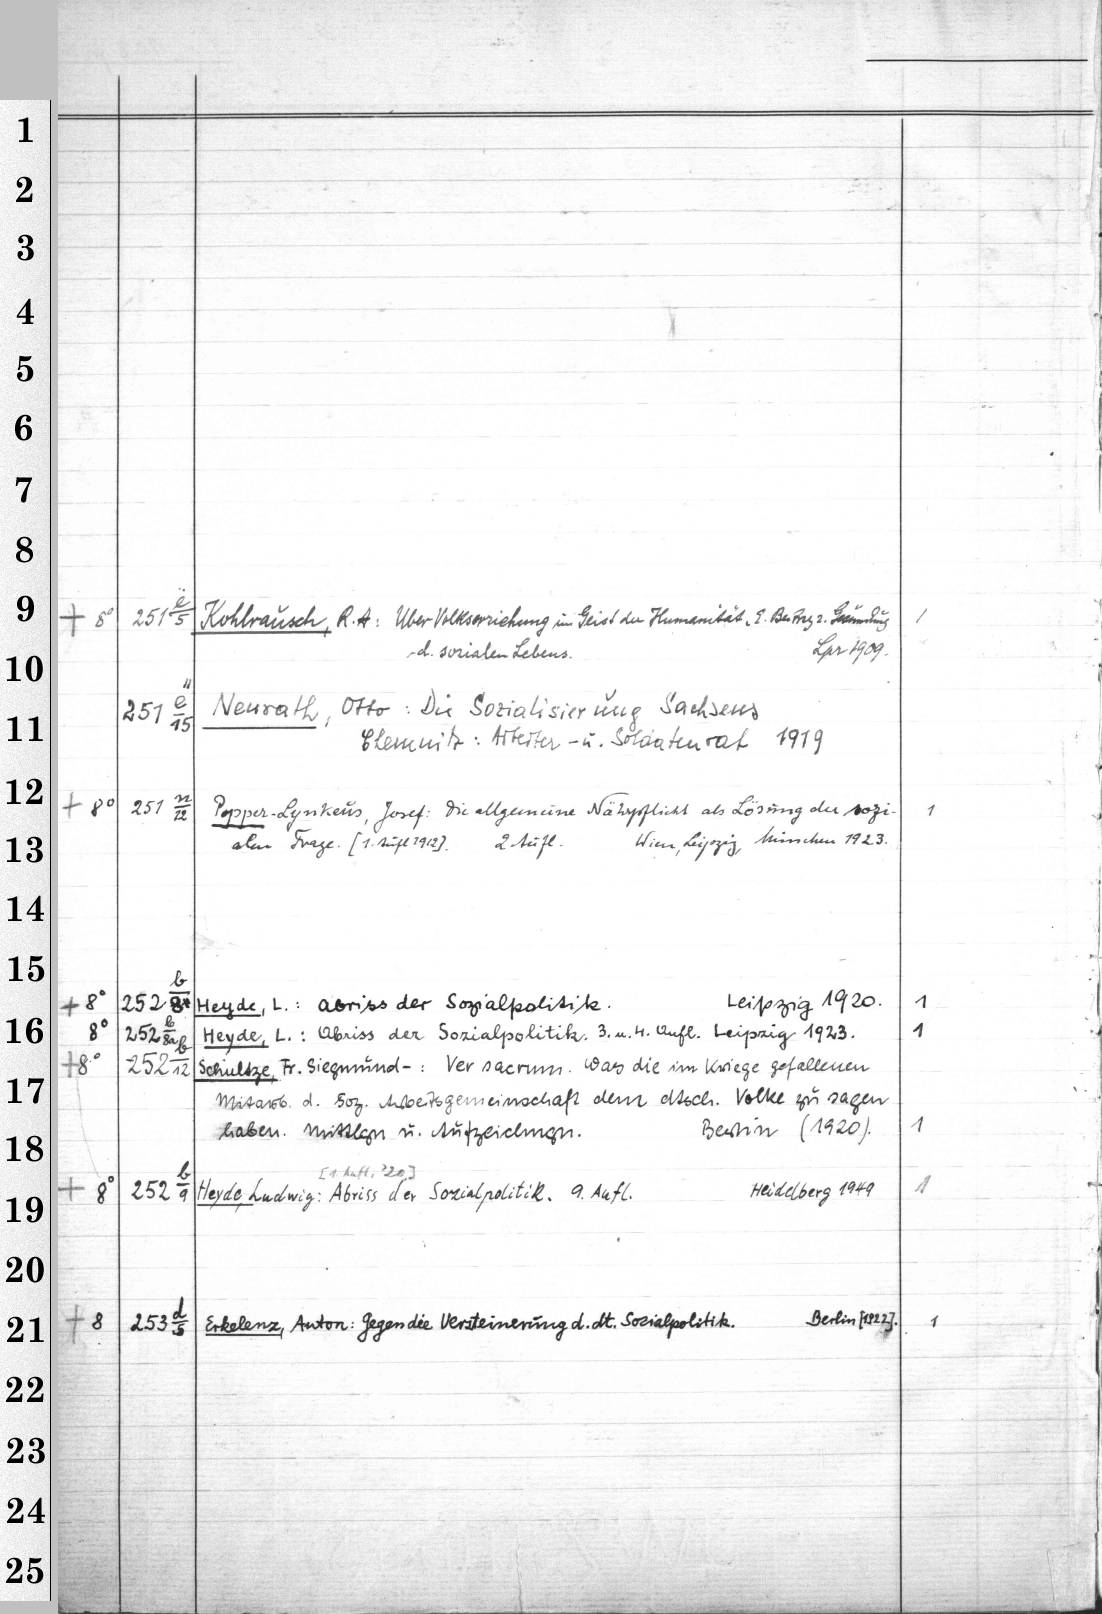 1
2
3
4
5
6
7
8
9 + 8° 251 ë/5 Kohlrausch, R. A: Über Volkserziehung im Geist der Humanität. E. Beitrag z. Gesundung 1
10 d. sozialen Lebens. Lpz 1909.
251 ë/15 Neurath, Otto: Die Sozialisierung Sachsens
11 Chemnitz: Arbeiter- u. Soldatenrat 1919
12 + 8° 251 n/12 Popper-Lynkeus, Josef: Die allgemeine Nährpflicht als Lösung der sozi- 1
13 alen Frage. [1. Aufl 1912]. 2 Aufl. Wien, Leipzig, München 1923.
14
15
+ 8° 252 b/8 Heyde, L.: Abriss der Sozialpolitik. Leipzig 1920. 1
16 8° 252 b/8a Heyde, L.: Abriss der Sozialpolitik. 3. u. 4. Aufl. Leipzig 1923. 1
+ 8° 252 b/12 Schultze, Fr. Siegmund-: Ver sacrum. Was die im Kriege gefallenen
17 Mitarb. d. Soz. Arbeitsgemeinschaft dem dtsch. Volke zu sagen
18 haben. Mittlgn u. Aufzeichngn. Berlin (1920). 1
[1. Aufl. '20]
+ 8° 252 b/9 Heyde, Ludwig: Abriss der Sozialpolitik. 9. Aufl. Heidelberg 1949 1
19
20
21 + 8 253 d/5 Erkelenz, Anton: Gegen die Versteinerung d. dt. Sozialpolitik. Berlin [1922]. 1
22
23
24
25